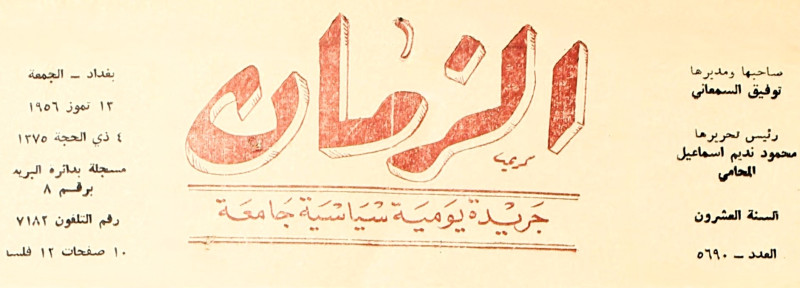 صاحبها ومديرها
توفيق السمعاني
رئيس تحريرها
محمود نديم اسماعيل
المحامي
السنة العشرون
العدد – ٥٦٩٠
الزمان
كريم
جريدة يومية سياسية جامعة
بغداد – الجمعة
١٣ تموز ١٩٥٦
٤ ذي الحجة ١٣٧٥
مسجلة بدائرة البريد
برقم ٨
رقم التلفون ٧١٨٢
١٠ صفحات ١٢ فلسا